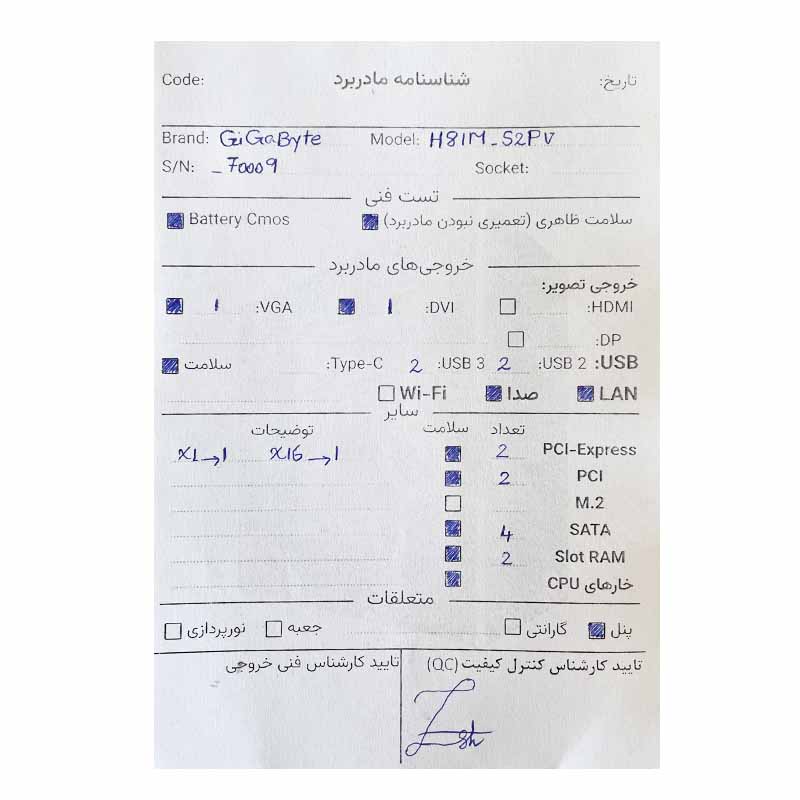 Code: شناسنامه مادربرد تاریخ:
Brand: GiGaByte Model: H81M_S2PV
S/N: _70009 Socket:
تست فنی
سلامت ظاهری (تعمیری نبودن مادربرد) Battery Cmos
خروجی‌های مادربرد
خروجی تصویر:
HDMI: DVI: 1 VGA: 1
DP:
USB: USB 2: 2 USB 3: 2 Type-C: سلامت
LAN صدا Wi-Fi
سایر
تعداد سلامت توضیحات
PCI-Express 2 X16→1 X1→1
PCI 2
M.2
SATA 4
Slot RAM 2
خارهای CPU
متعلقات
پنل گارانتی جعبه نورپردازی
تایید کارشناس کنترل کیفیت (QC) تایید کارشناس فنی خروجی